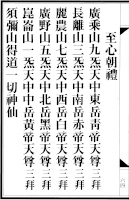 至心朝禮
廣乘山九炁天中東岳青帝天尊三拜
長離山三炁天中南岳赤帝天尊三拜
麗農山七炁天中西岳白帝天尊三拜
廣野山五炁天中北岳黑帝天尊三拜
崑崙山一炁天中中岳黃帝天尊三拜
須彌山得道一切神仙